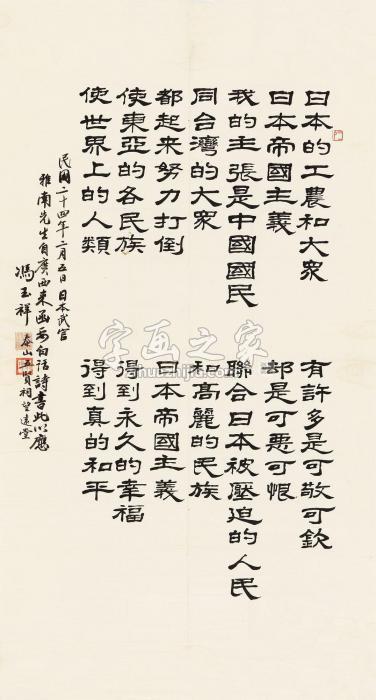 日本的工農和大眾　有許多是可敬可欽
日本帝國主義　却是可惡可恨
我的主張是中國國民　聯合日本被壓迫的人民
同台灣的大眾　和高麗的民族
都起來努力打倒　日本帝國主義
使東亞的各民族　得到永久的幸福
使世界上的人類　得到真的和平
民國二十四年二月五日　日本武官
雅南先生自廣西來函索白話詩書此以應
馮玉祥　泰山五賢祠望遠堂
字画之家